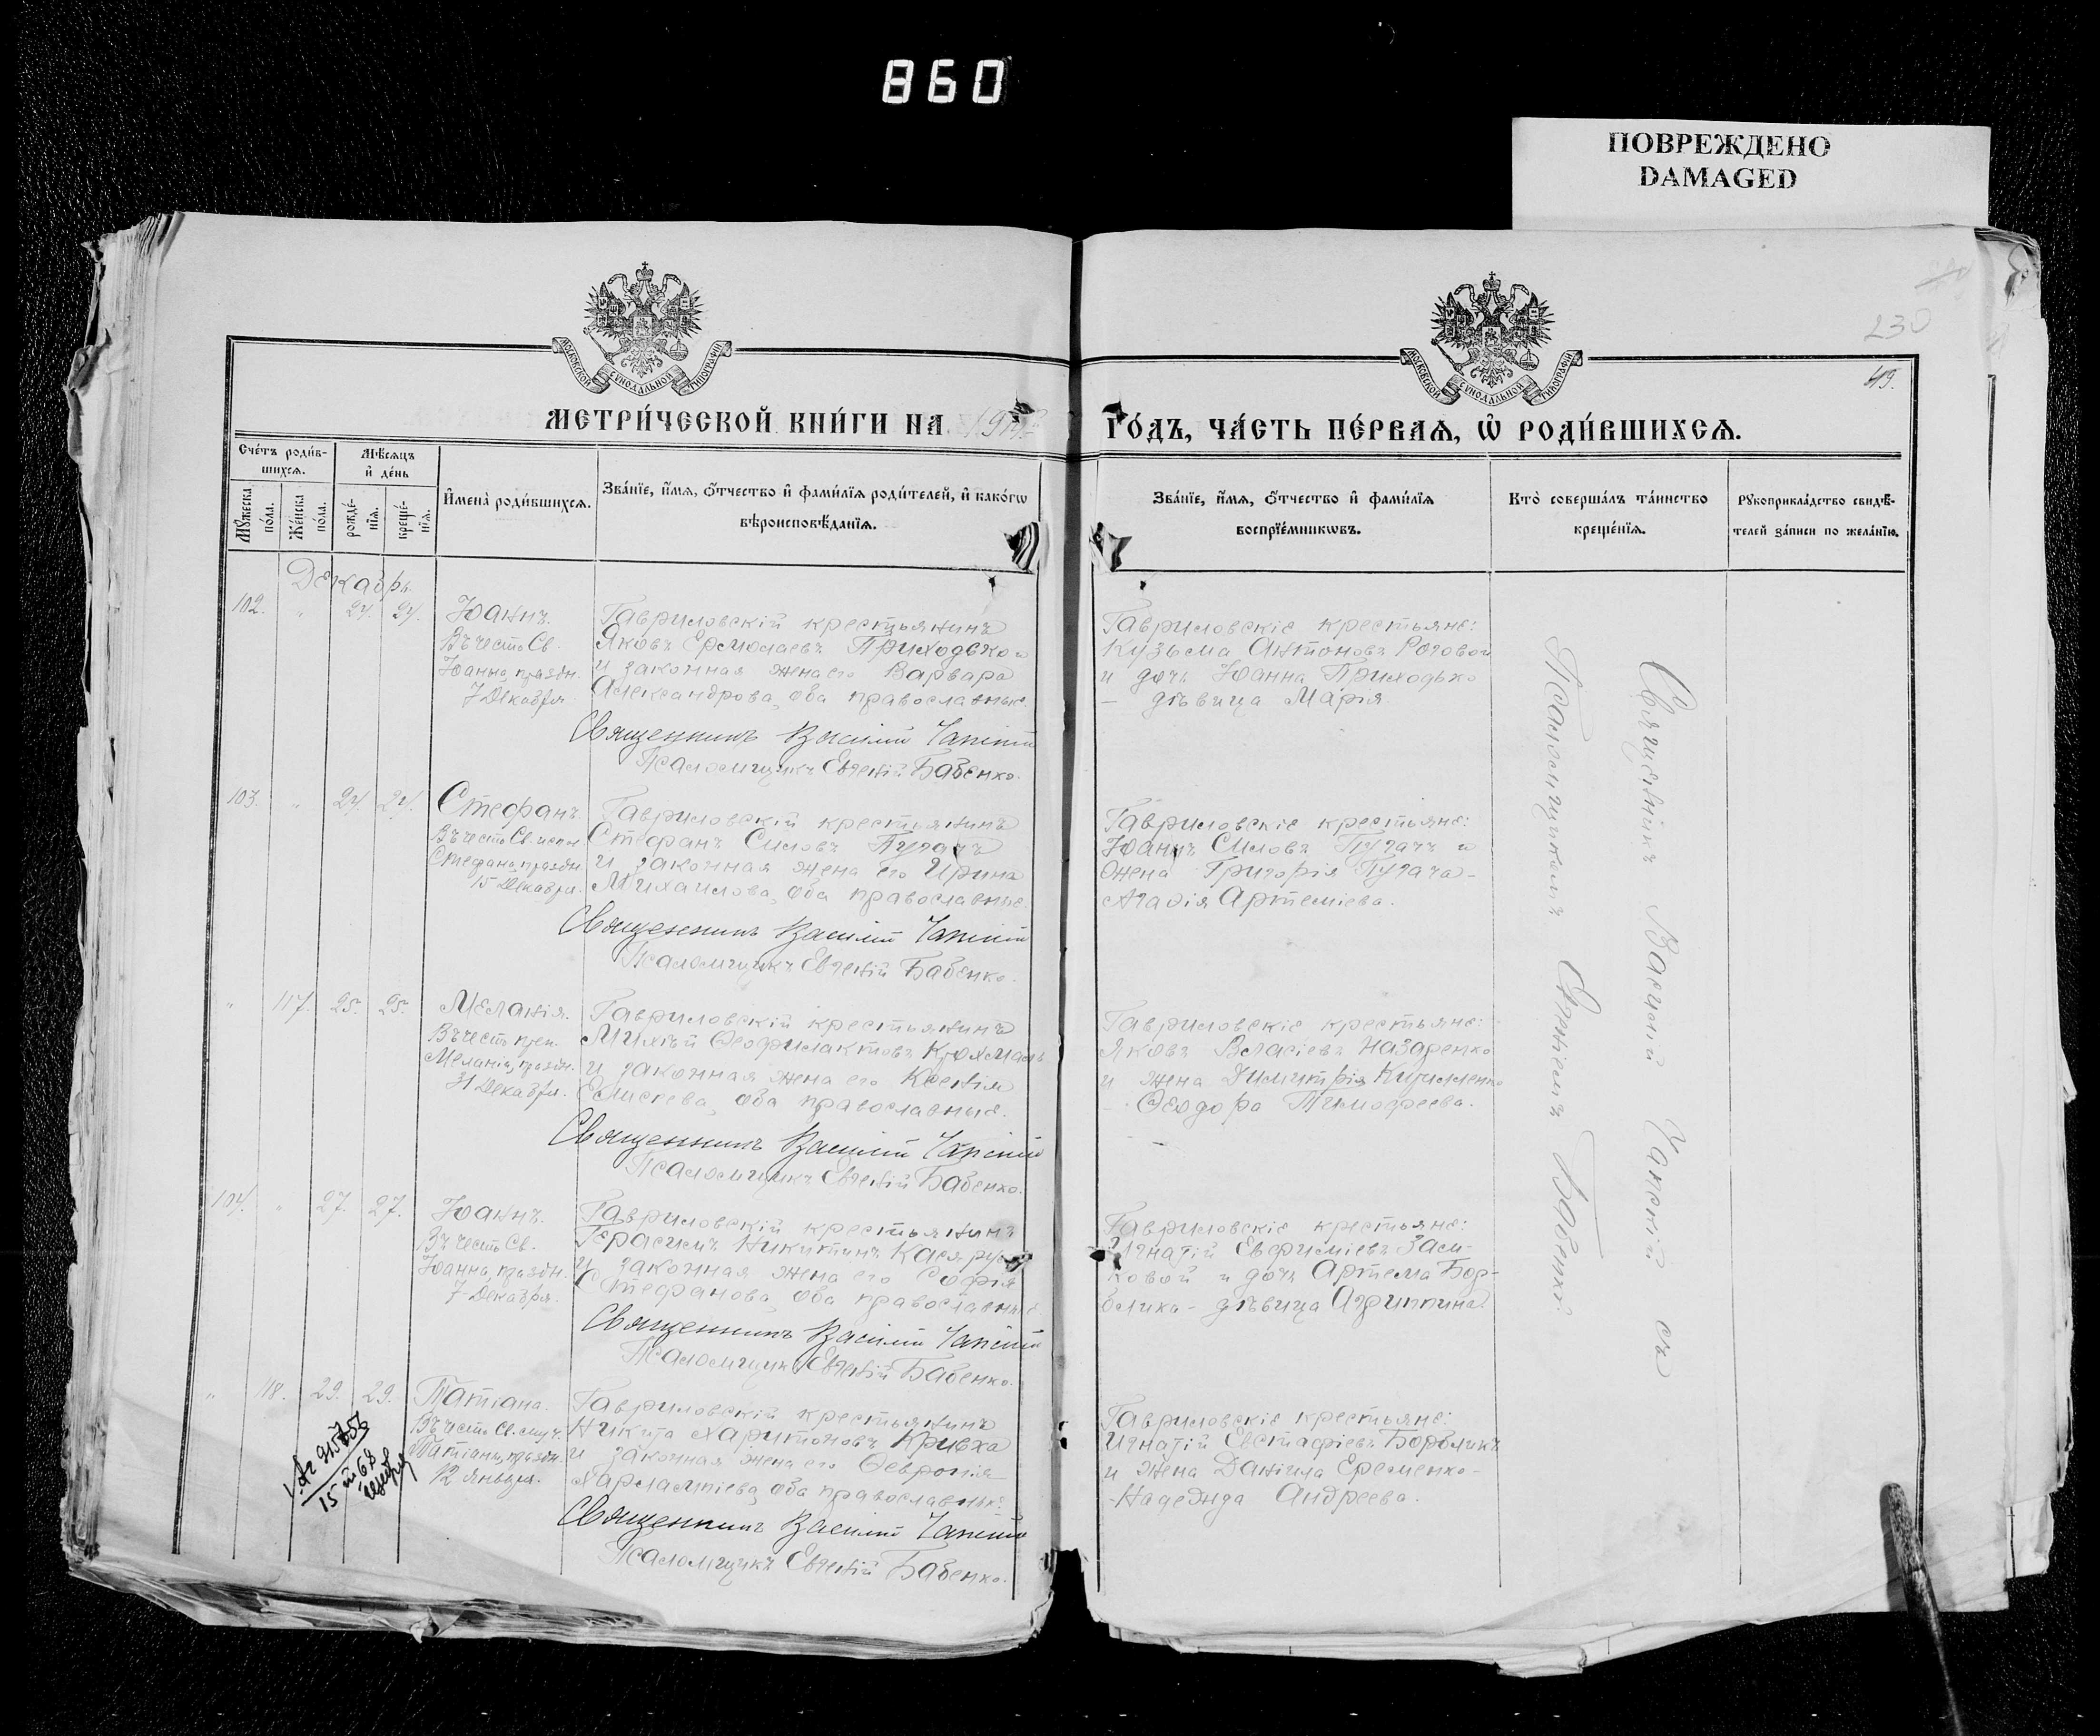 860
ПОВРЕЖДЕНО
DAMAGED
230
49.
МОСКОВСКОЙ СѴНОДАЛЬНОЙ ТИПОГРАФІИ
МОСКОВСКОЙ СѴНОДАЛЬНОЙ ТИПОГРАФІИ
МЕТРИ́ЧЕСКОЙ КНИ́ГИ НА
ГО́ДЪ, ЧА́СТЬ ПЕ́РВАѦ, Ѡ҆ РОДИ́ВШИХСѦ.
Сче́тъ роди́в-
шихсѧ.
Мѣ́сѧцъ
и҆ де́нь
Мꙋ́жеска
по́ла.
Же́нска
по́ла.
рожде́-
нїѧ.
креще́-
нїѧ.
И҆мена̀ роди́вшихсѧ.
Зва́нїе, и҆́мѧ, ѻ҆́тчество и҆ фами́лїѧ роди́телей, и҆ како́гѡ
вѣроисповѣ́данїѧ.
Зва́нїе, и҆́мѧ, ѻ҆́тчество и҆ фами́лїѧ
воспрїе́мникѡвъ.
Кто̀ соверша́лъ та́инство
креще́нїѧ.
Рꙋкоприкла́дство свидѣ́-
телей за́писи по жела́нїю.
Декабрь
102. " 24. 24.
Іоаннъ.
Въ честь Св.
Іоанна, праздн.
7 Декабря.
Гавриловскій крестьянинъ
Яковъ Ермолаевъ Приходько
и законная жена его Варвара
Александрова, оба православные.
Священникъ Василій Чапскій
Псаломщикъ Евгеній Бабенко.
Гавриловскіе крестьяне:
Кузьма Антоновъ Роговой
и дочь Іоанна Приходько
— дѣвица Марія.
103. " 24. 24.
Стефанъ.
Въ честь Св. испов.
Стефана, праздн.
15 Декабря.
Гавриловскій крестьянинъ
Стефанъ Силовъ Пугачъ
и законная жена его Ирина
Михаилова, оба православные.
Священникъ Василій Чапскій
Псаломщикъ Евгеній Бабенко.
Гавриловскіе крестьяне:
Іоаннъ Силовъ Пугачъ и
жена Григорія Пугача-
Агафія Артеміева.
" 117. 25. 25.
Меланія.
Въ честь преп.
Меланіи, праздн.
31 Декабря.
Гавриловскій крестьянинъ
Михѣй Ѳеофилактовъ Крохмаль
и законная жена его Ксенія
Елисеева, оба православные.
Священникъ Василій Чапскій
Псаломщикъ Евгеній Бабенко.
Гавриловскіе крестьяне:
Яковъ Власіевъ Назаренко
и жена Димитрія Кириленко
- Ѳеодора Тимофеева.
104. " 27. 27.
Іоаннъ.
Въ честь Св.
Іоанна, праздн.
7 Декабря.
Гавриловскій крестьянинъ
Герасимъ Никитинъ
и законная жена его Софія
Стефанова, оба православные.
Священникъ Василій Чапскій
Псаломщикъ Евгеній Бабенко.
Гавриловскіе крестьяне:
Игнатій Евфиміевъ Засы-
и дочь Артема Бор-
блика - дѣвица Агриппина.
" 118. 29. 29.
Татіана.
Въ честь Св. муч.
Татіаны, праздн.
12 Января.
Гавриловскій крестьянинъ
Никита Харитоновъ Кривха
и законная жена его Ѳевронія
Харлампіева, оба православные.
Священникъ Василій Чапскій
Псаломщикъ Евгеній Бабенко.
Гавриловскіе крестьяне:
Игнатій Евстафіевъ Борбликъ
и жена Даніила Еременко-
-Надежда Андреева.
Священникъ Василій Чапскій съ
Псаломщикомъ Евгеніемъ Бабенко.